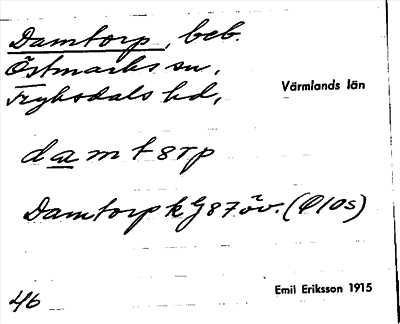 Damtorp, beb.
Östmarks sn,
Fryksdals hd,
Värmlands län
damtorp
Damtorp k G 87 öv. (Ö10s)
46
Emil Eriksson 1915